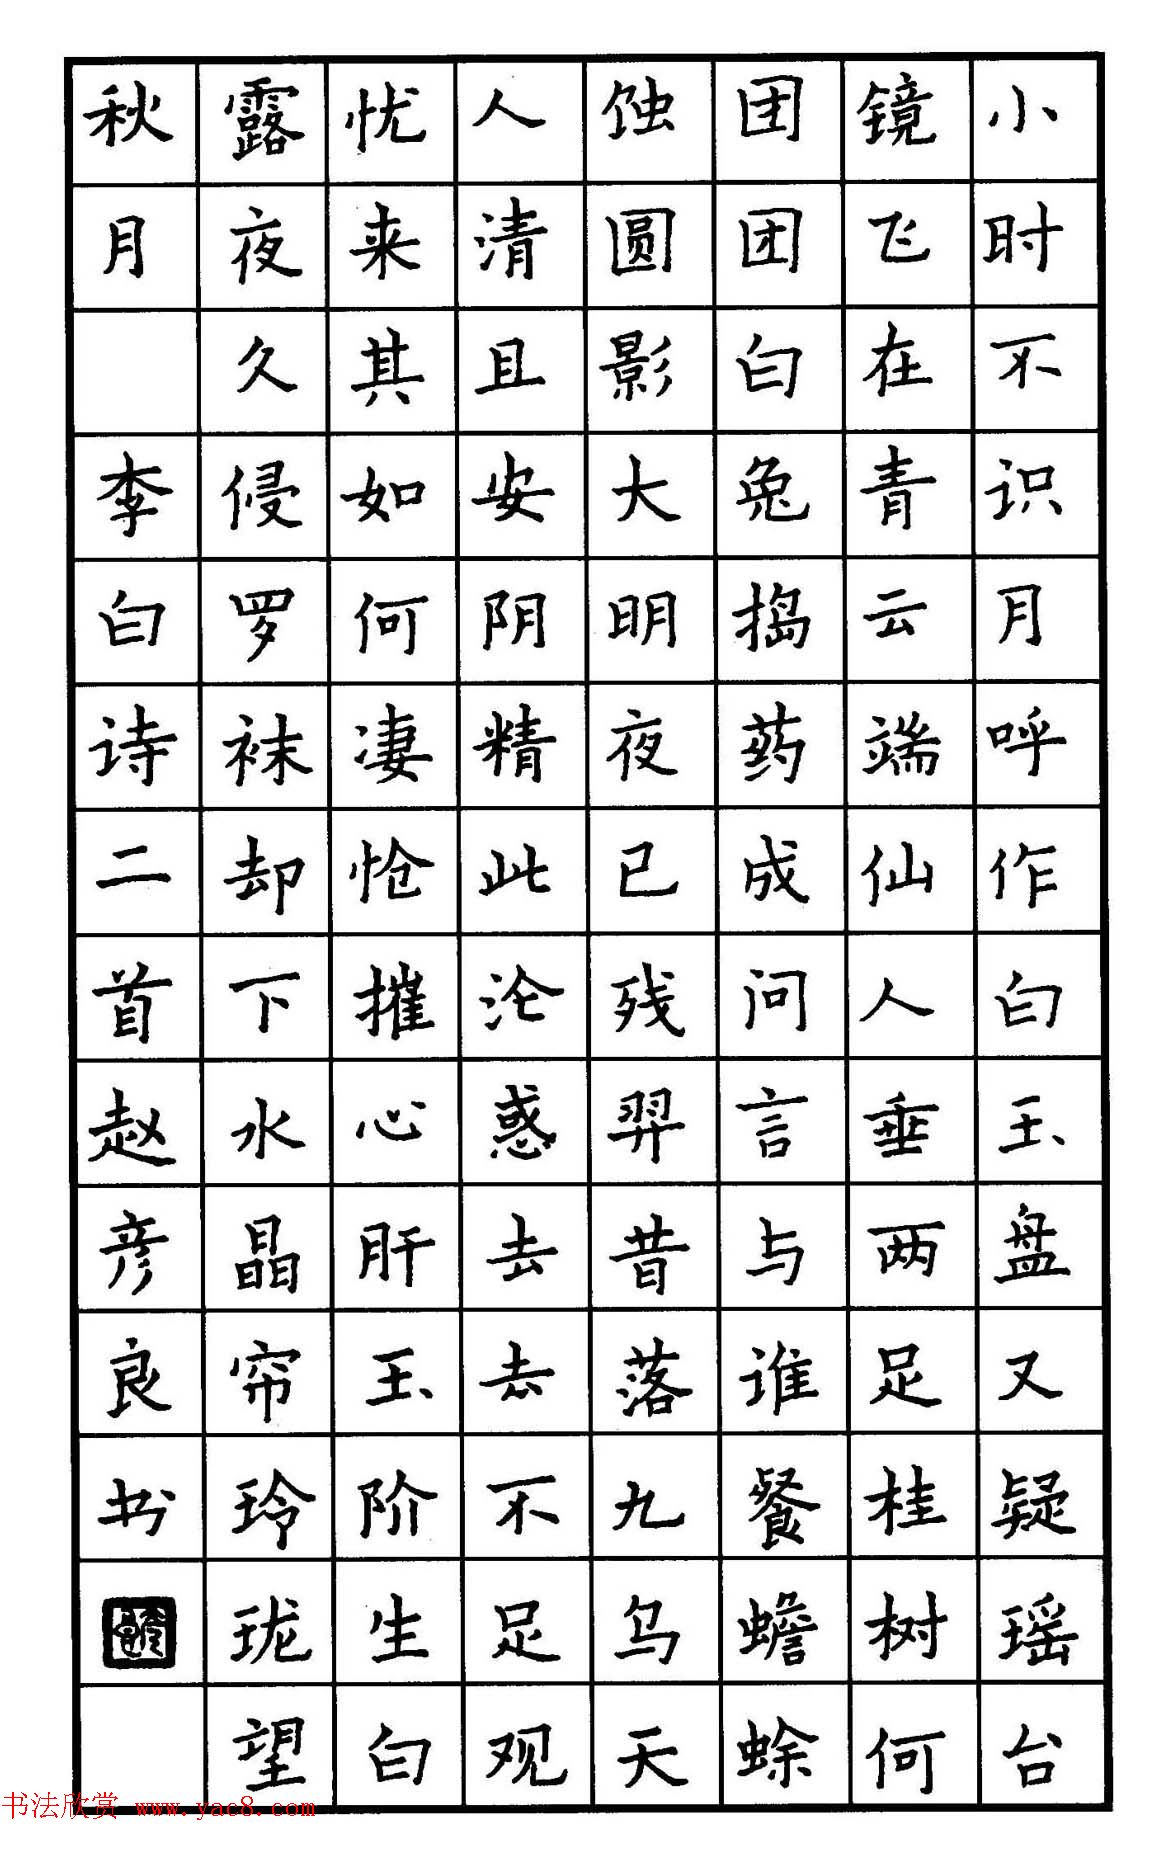 小时不识月呼作白玉盘又疑瑶台
镜飞在青云端仙人垂两足桂树何
团团白兔捣药成问言与谁餐蟾蜍
蚀圆影大明夜已残羿昔落九乌天
人清且安阴精此沦惑去去不足观
忧来其如何凄怆摧心肝玉阶生白
露夜久侵罗袜却下水晶帘玲珑望
秋月 李白诗二首赵彦良书
书法欣赏 www.yac8.com